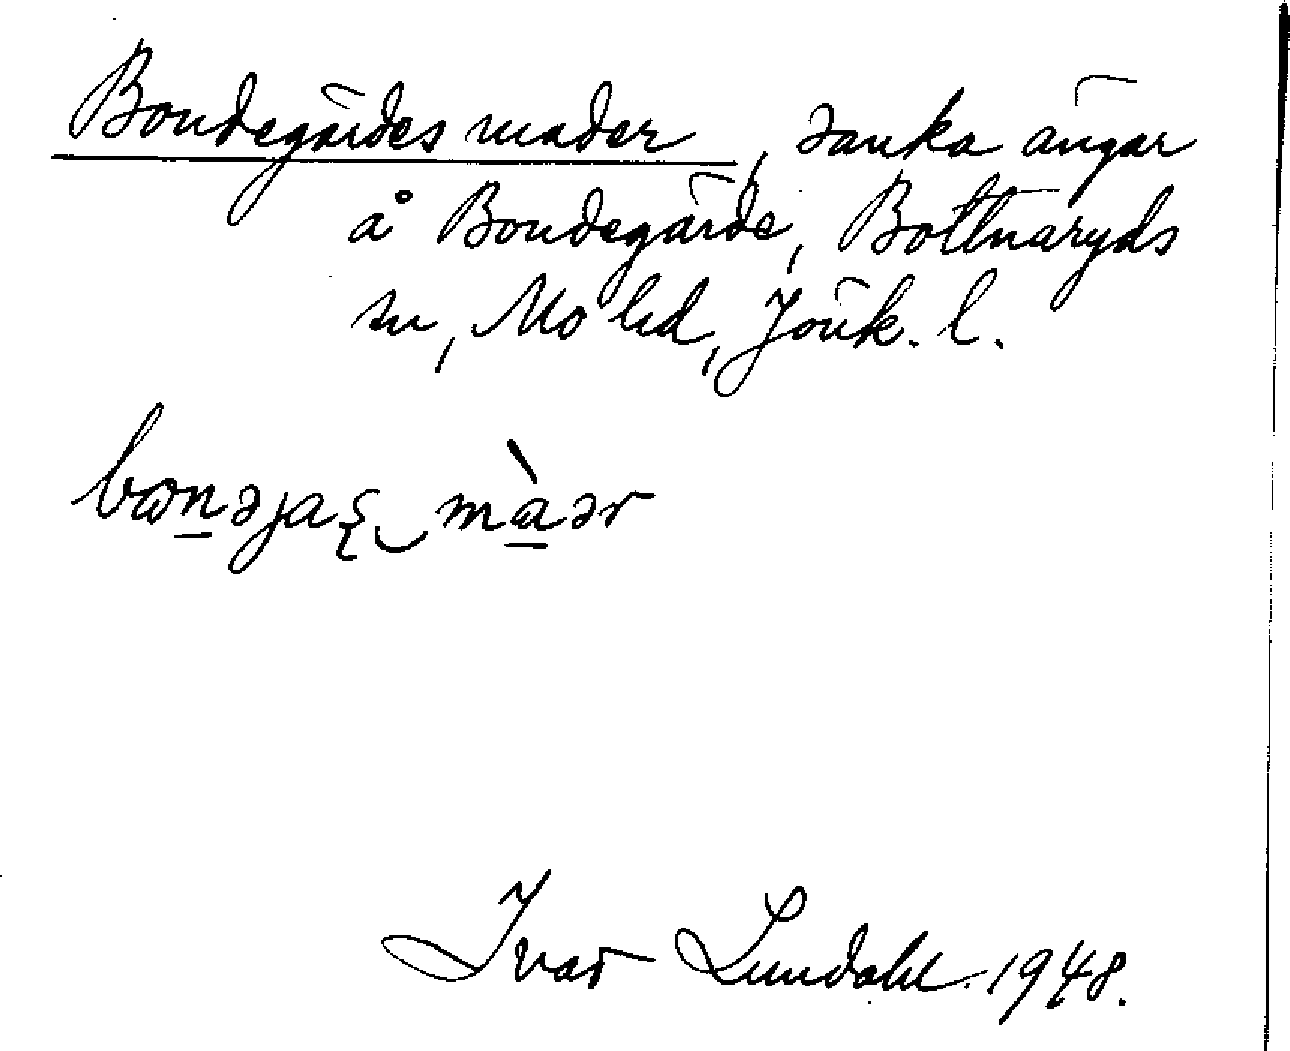 Bondegärdes mader, sanka ängar
å Bondegärde, Bottnaryds
sn, Mo hd, Jönk. l.
Ivar Lundahl 1948.